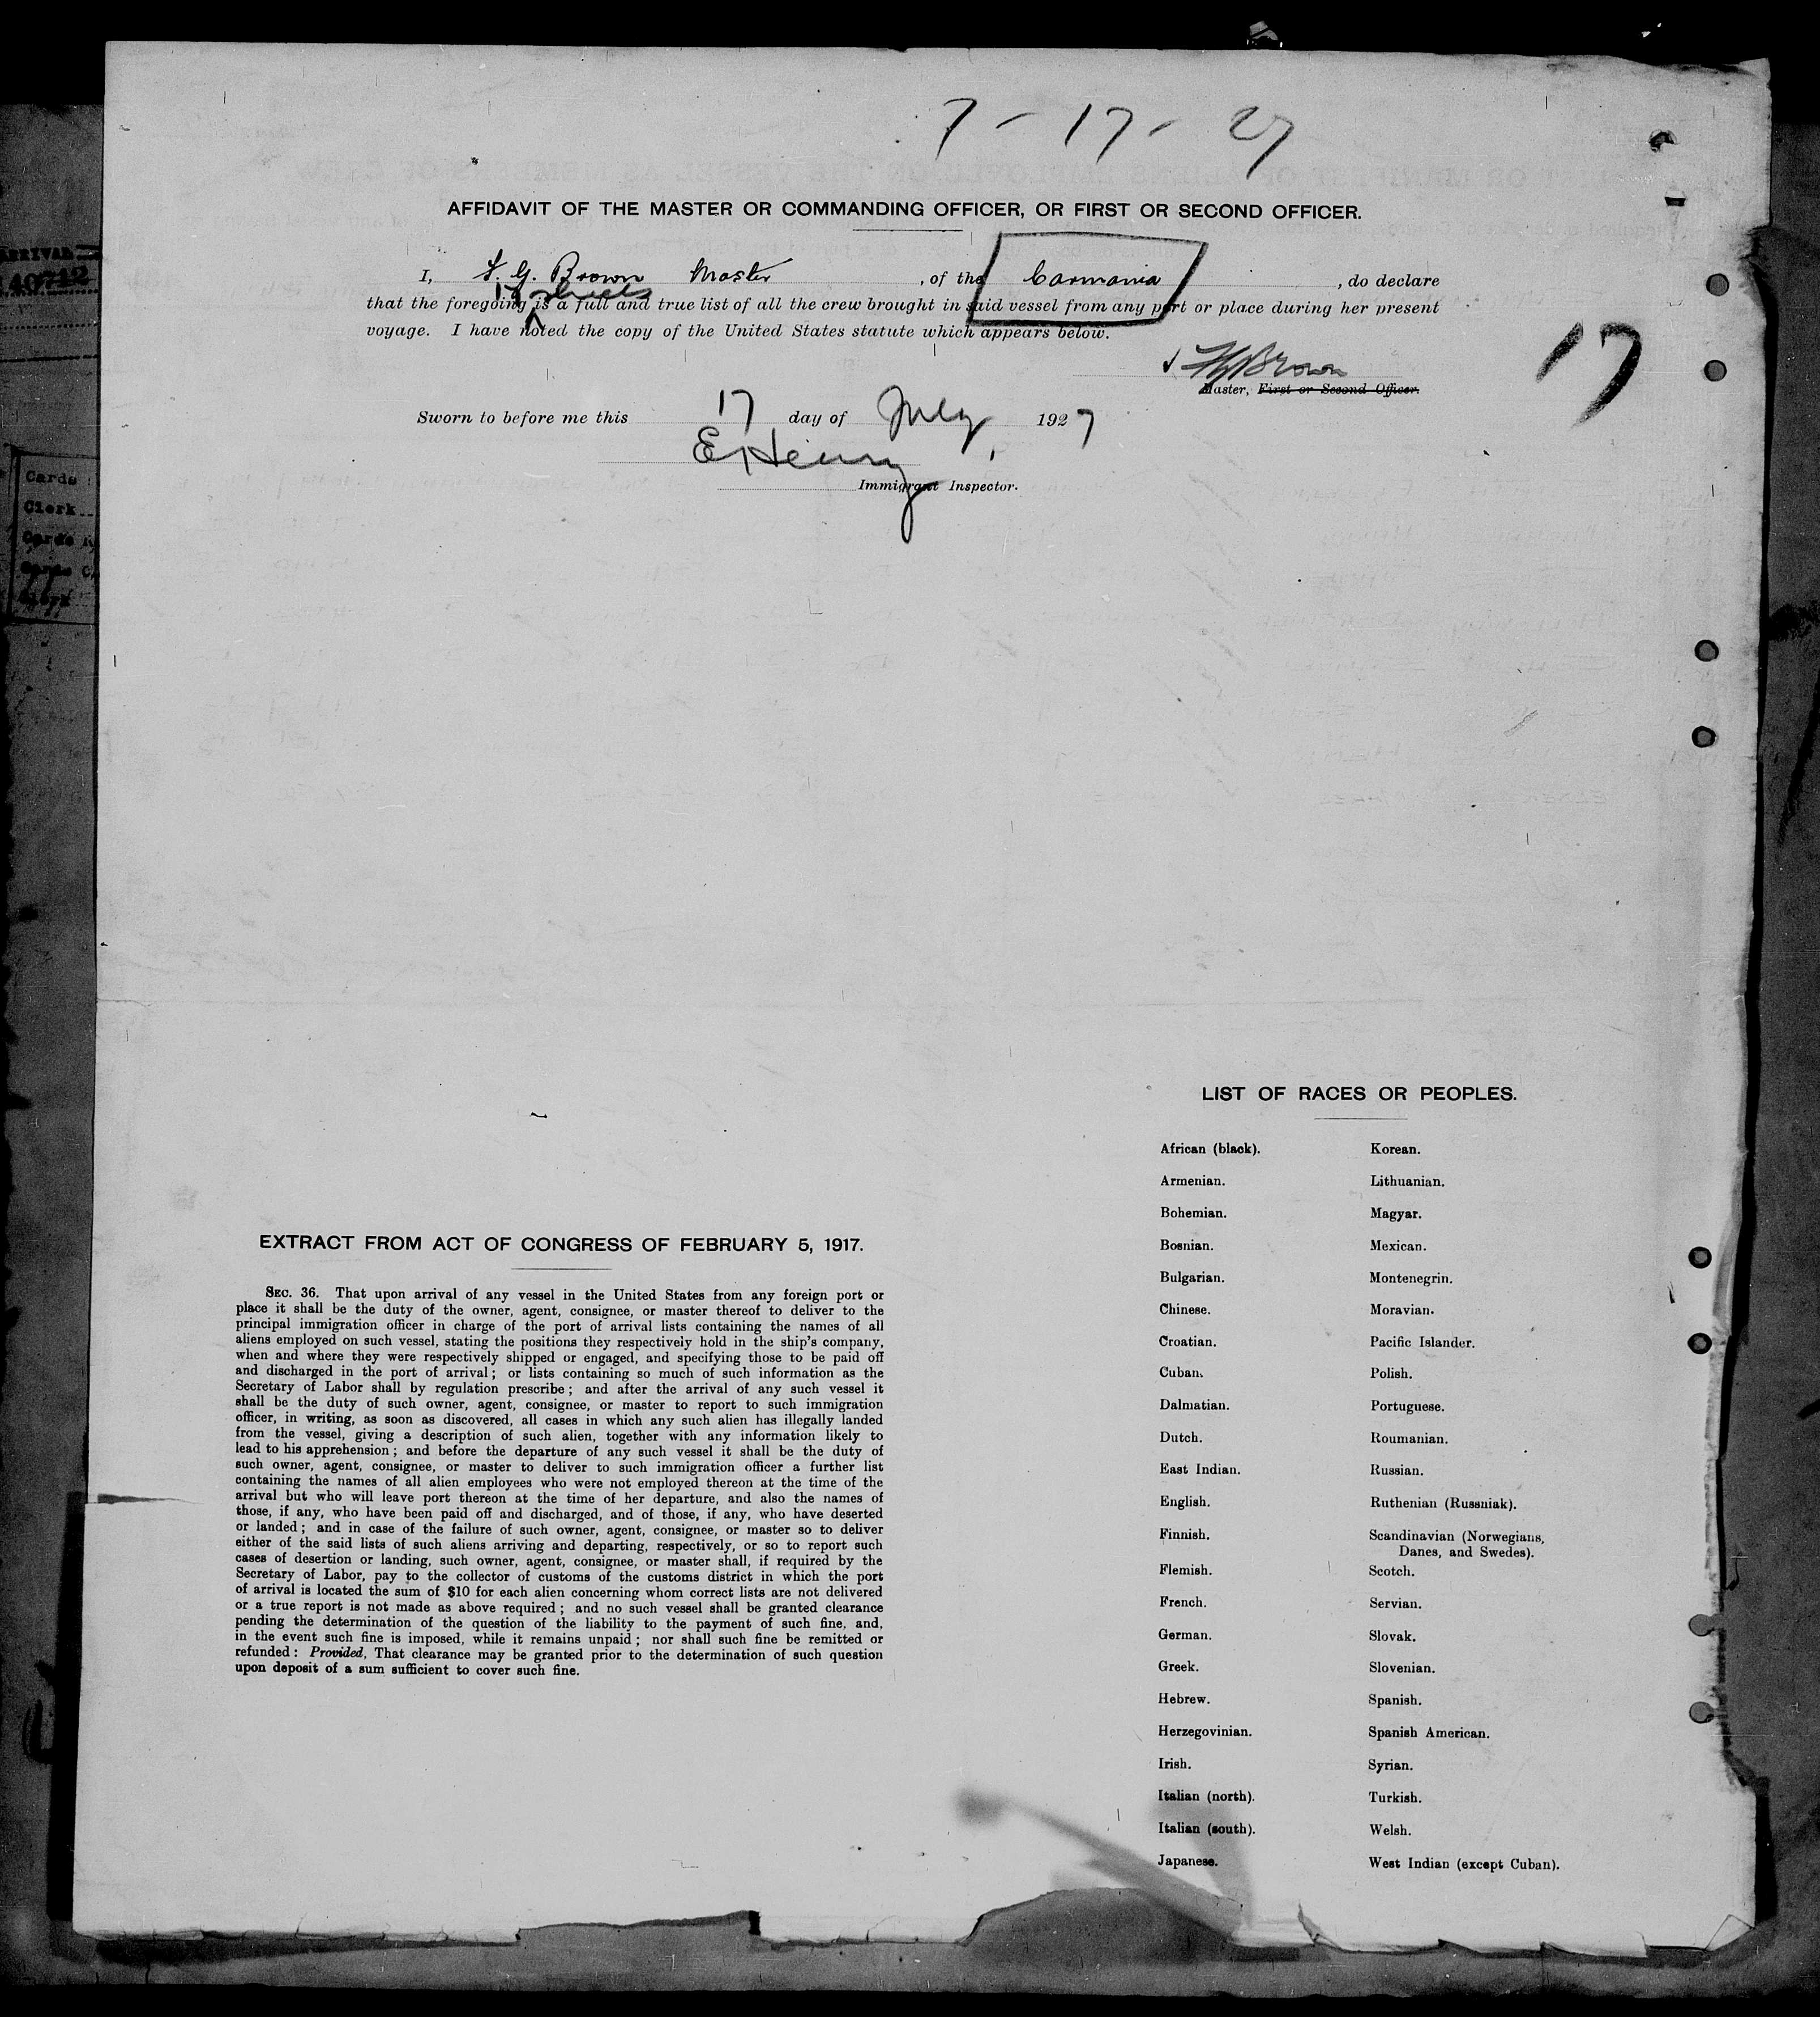 7 - 17 - 27
AFFIDAVIT OF THE MASTER OR COMMANDING OFFICER, OR FIRST OR SECOND OFFICER.
I, F. G. Brown Master, of the Carmania, do declare
17 sheets
that the foregoing is a full and true list of all the crew brought in said vessel from any port or place during her present
voyage. I have noted the copy of the United States statute which appears below.
Brown
17
Master, First or Second Officer.
Sworn to before me this 17 day of July, 1927
E Henry
Immigrant Inspector.
ARRIVAL
40712
Cards
Clerk
Cards
Cards C
Clerk
LIST OF RACES OR PEOPLES.
African (black). Korean.
Armenian. Lithuanian.
Bohemian. Magyar.
Bosnian. Mexican.
Bulgarian. Montenegrin.
Chinese. Moravian.
Croatian. Pacific Islander.
Cuban. Polish.
Dalmatian. Portuguese.
Dutch. Roumanian.
East Indian. Russian.
English. Ruthenian (Russniak).
Finnish. Scandinavian (Norwegians,
Danes, and Swedes).
Flemish. Scotch.
French. Servian.
German. Slovak.
Greek. Slovenian.
Hebrew. Spanish.
Herzegovinian. Spanish American.
Irish. Syrian.
Italian (north). Turkish.
Italian (south). Welsh.
Japanese. West Indian (except Cuban).
EXTRACT FROM ACT OF CONGRESS OF FEBRUARY 5, 1917.
SEC. 36. That upon arrival of any vessel in the United States from any foreign port or
place it shall be the duty of the owner, agent, consignee, or master thereof to deliver to the
principal immigration officer in charge of the port of arrival lists containing the names of all
aliens employed on such vessel, stating the positions they respectively hold in the ship's company,
when and where they were respectively shipped or engaged, and specifying those to be paid off
and discharged in the port of arrival; or lists containing so much of such information as the
Secretary of Labor shall by regulation prescribe; and after the arrival of any such vessel it
shall be the duty of such owner, agent, consignee, or master to report to such immigration
officer, in writing, as soon as discovered, all cases in which any such alien has illegally landed
from the vessel, giving a description of such alien, together with any information likely to
lead to his apprehension; and before the departure of any such vessel it shall be the duty of
such owner, agent, consignee, or master to deliver to such immigration officer a further list
containing the names of all alien employees who were not employed thereon at the time of the
arrival but who will leave port thereon at the time of her departure, and also the names of
those, if any, who have been paid off and discharged, and of those, if any, who have deserted
or landed; and in case of the failure of such owner, agent, consignee, or master so to deliver
either of the said lists of such aliens arriving and departing, respectively, or so to report such
cases of desertion or landing, such owner, agent, consignee, or master shall, if required by the
Secretary of Labor, pay to the collector of customs of the customs district in which the port
of arrival is located the sum of $10 for each alien concerning whom correct lists are not delivered
or a true report is not made as above required; and no such vessel shall be granted clearance
pending the determination of the question of the liability to the payment of such fine, and,
in the event such fine is imposed, while it remains unpaid; nor shall such fine be remitted or
refunded: Provided, That clearance may be granted prior to the determination of such question
upon deposit of a sum sufficient to cover such fine.